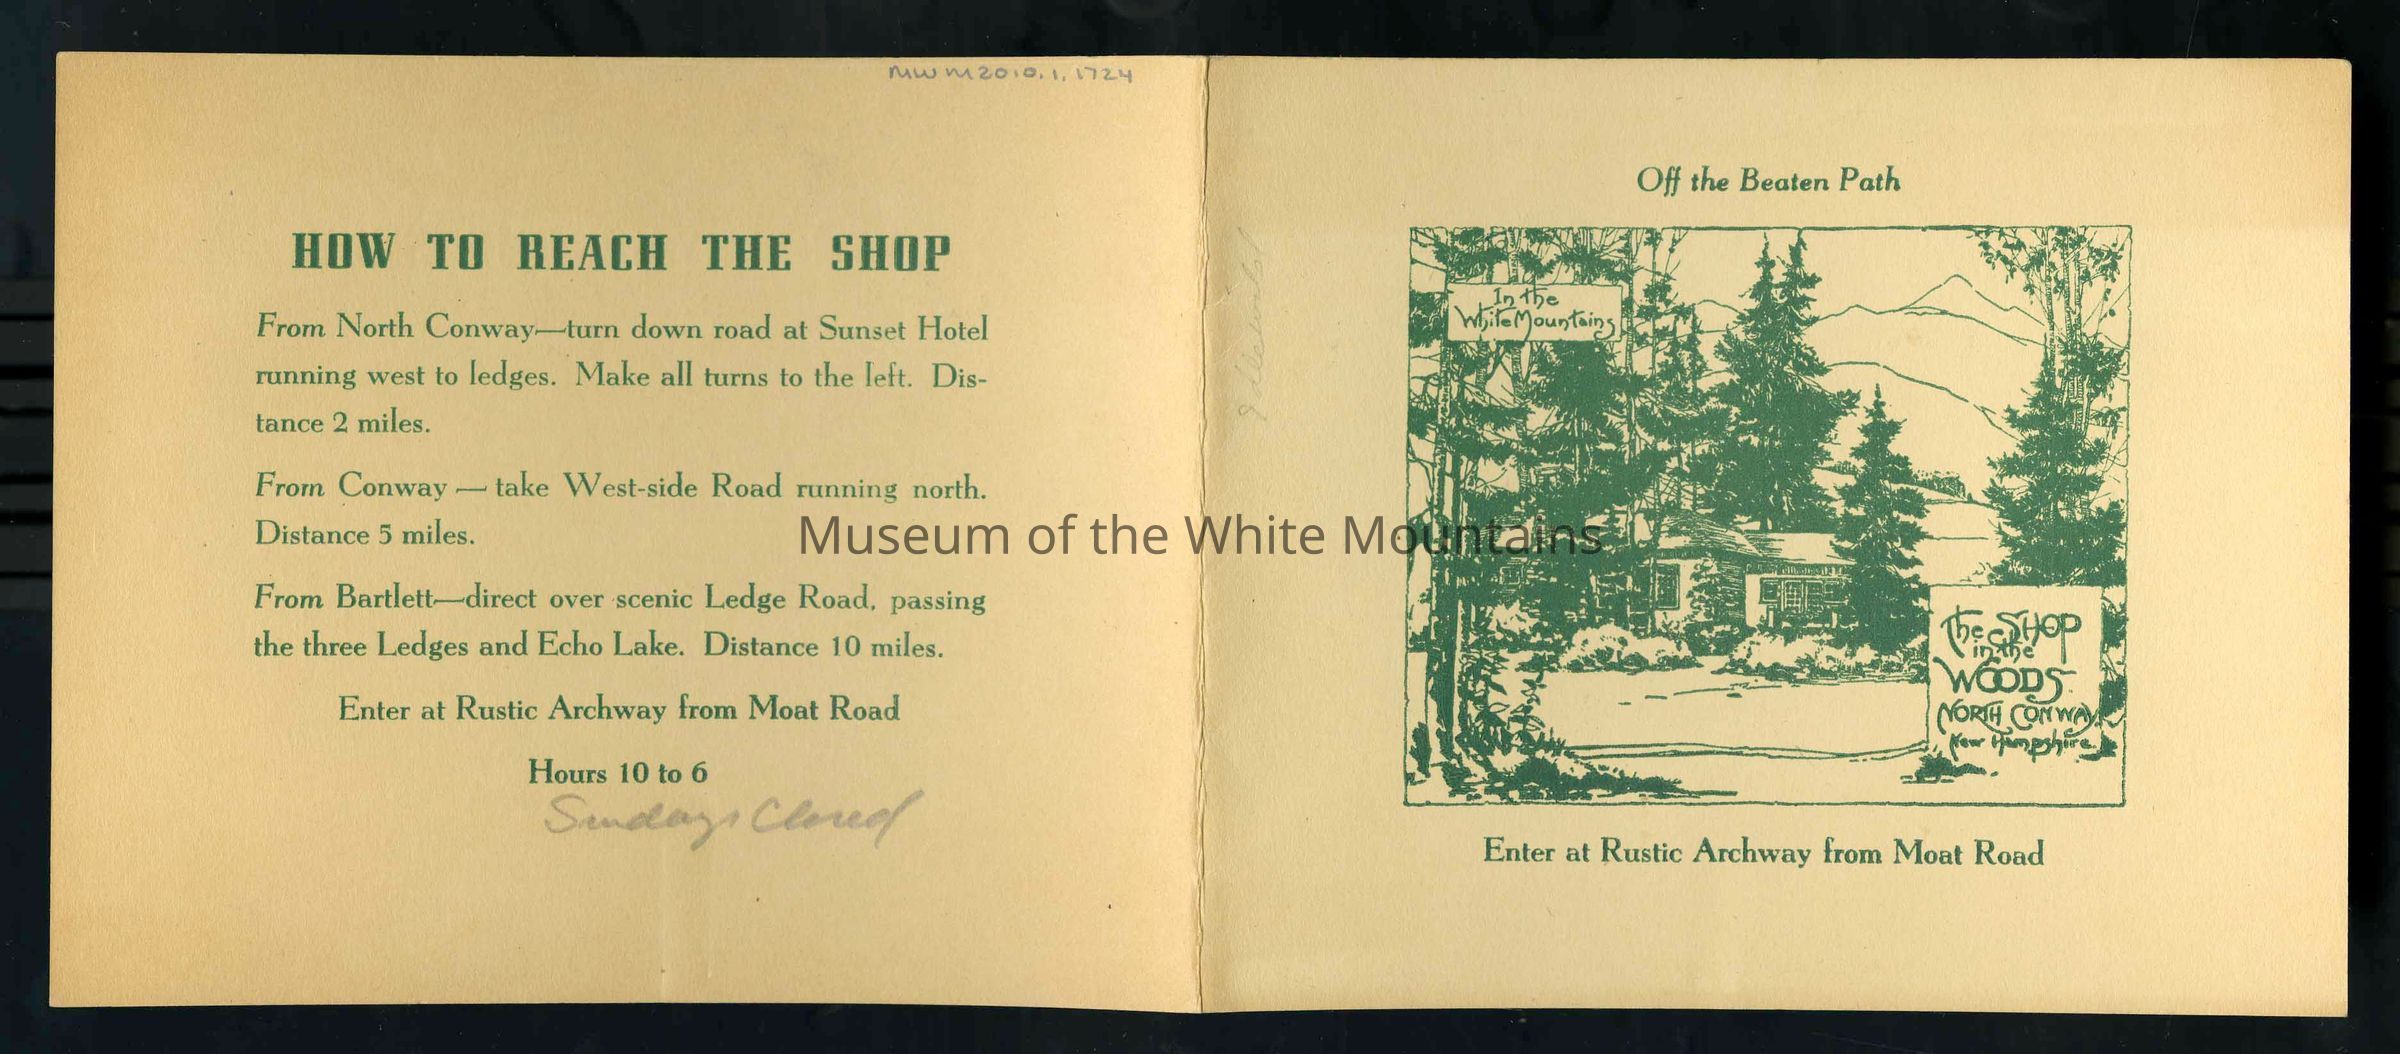 MWM2010.1.1724
HOW TO REACH THE SHOP
From North Conway—turn down road at Sunset Hotel
running west to ledges. Make all turns to the left. Dis-
tance 2 miles.
From Conway — take West-side Road running north.
Distance 5 miles.
From Bartlett—direct over scenic Ledge Road, passing
the three Ledges and Echo Lake. Distance 10 miles.
Enter at Rustic Archway from Moat Road
Hours 10 to 6
Sundays Closed
Museum of the White Mountains
Off the Beaten Path
In the
White Mountains
The SHOP
in the
WOODS
NORTH CONWAY
New Hampshire
Enter at Rustic Archway from Moat Road